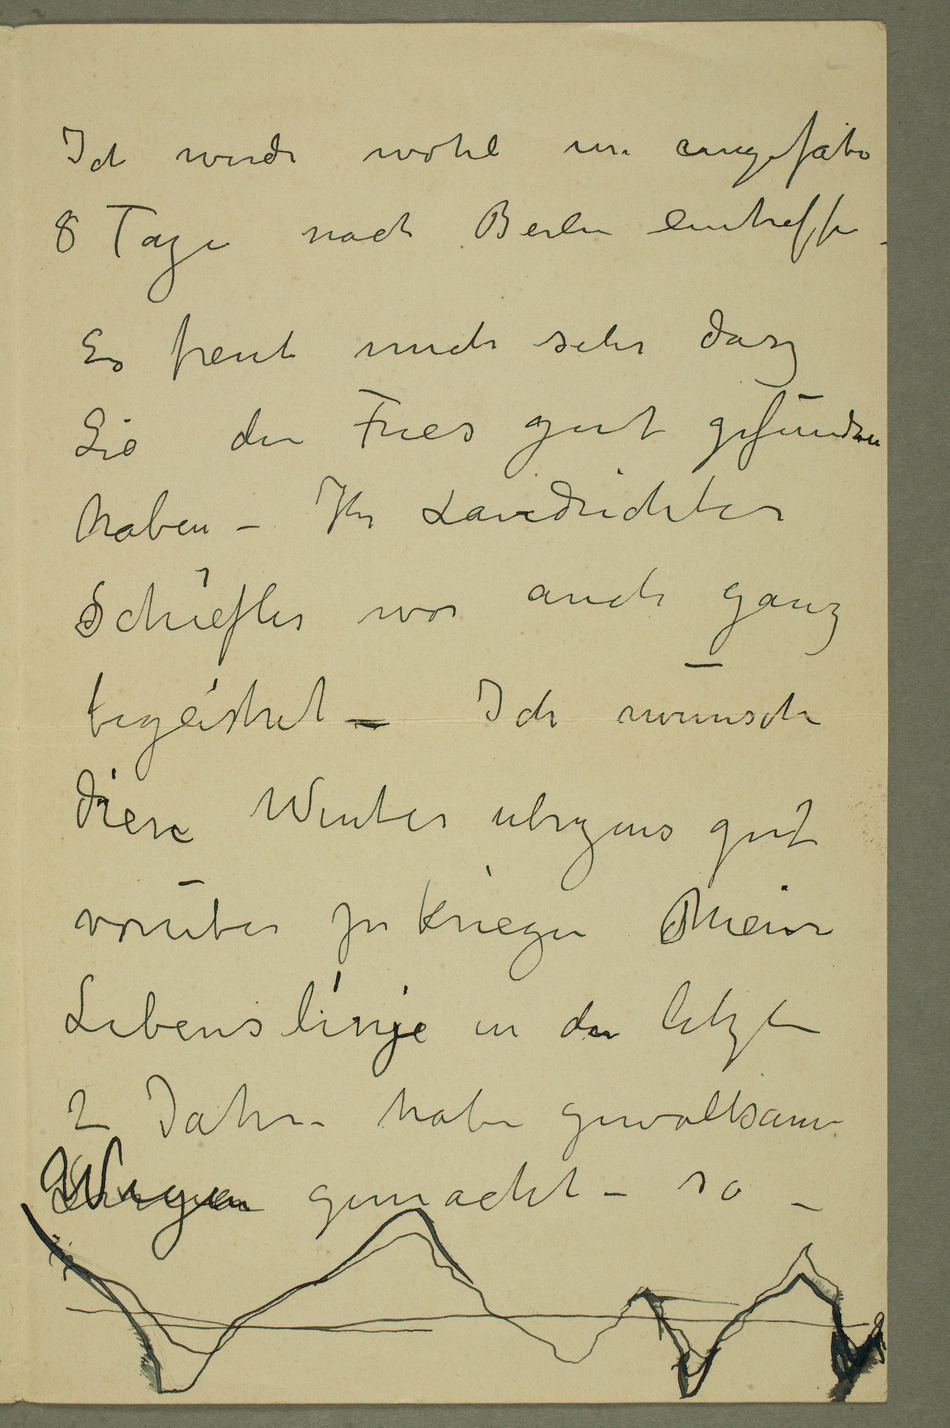 Ich werde wohl um ungefähr
8 Tage nach Berlin eintreffen.
Es freut mich sehr dasz
Sie den Fries gut gefunden
haben – Ihr Landrichter
Schiefler war auch ganz
begeistret – Ich wünsche
diesen Winter ubrigens gut
vorüber zu kriegen Meine
Lebenslinje in den letzten
2 Jahren habe gewaltsame
gemacht – so –